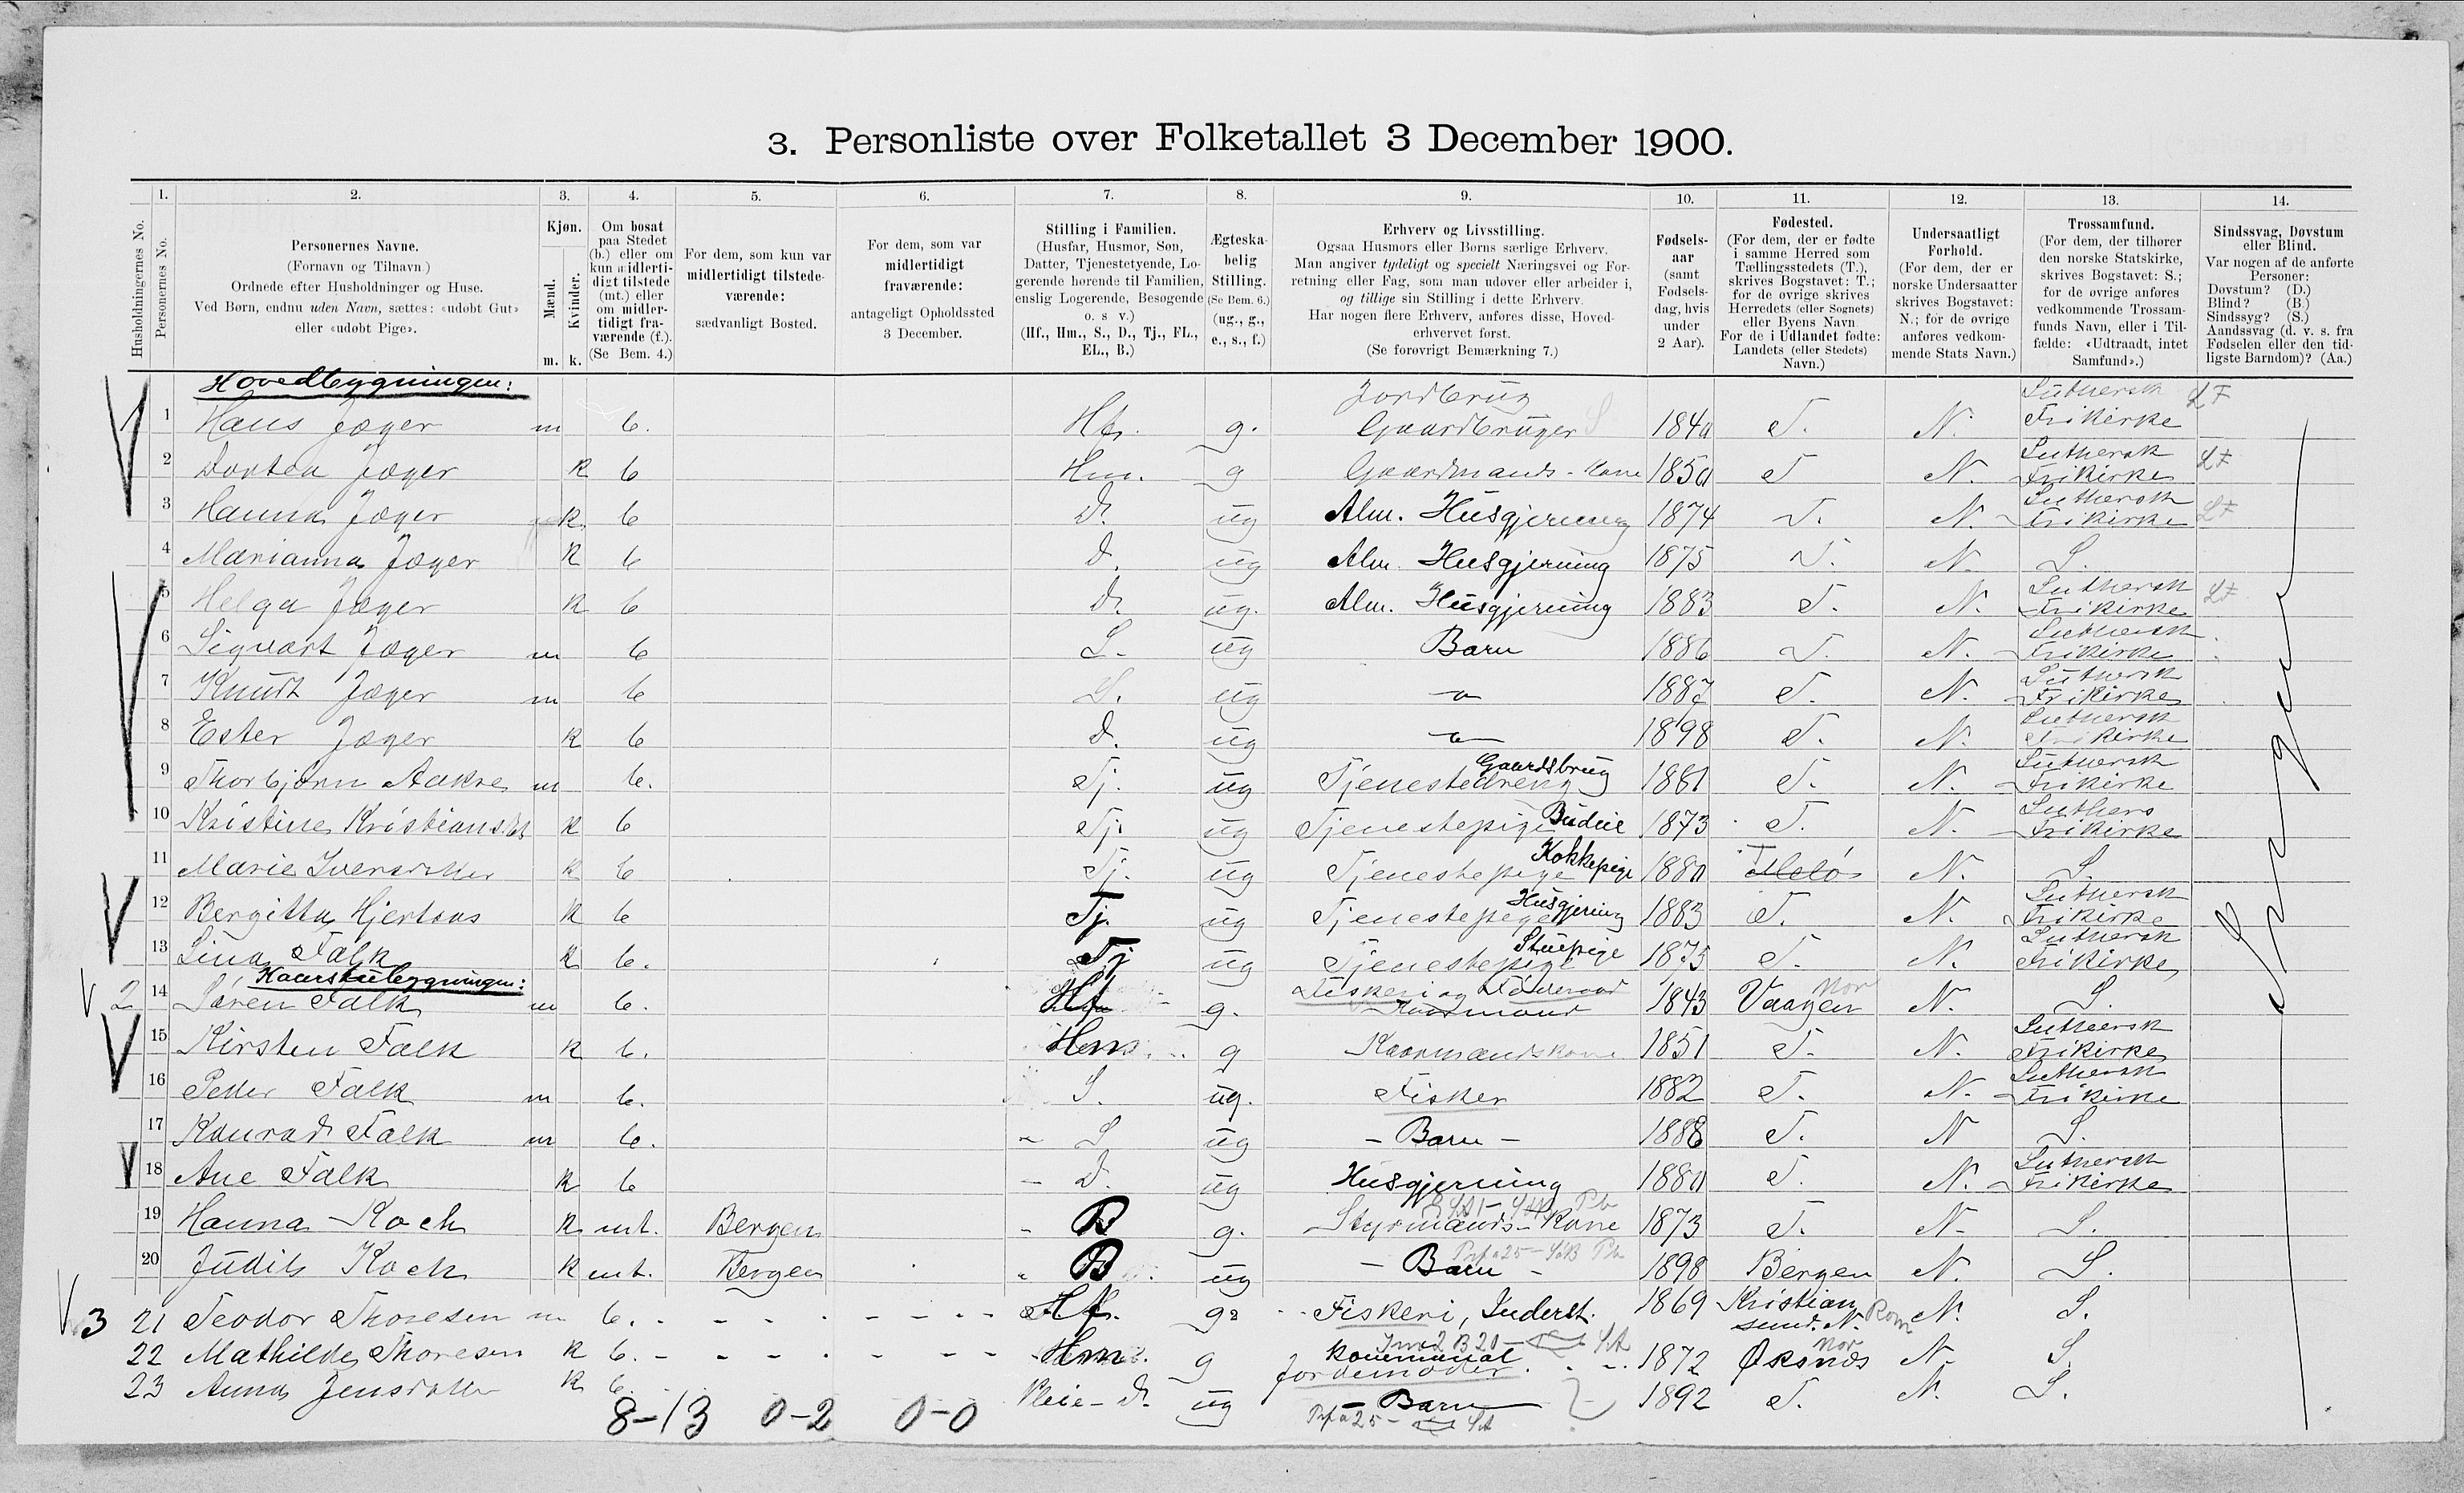 3. Personliste over Folketallet 3 December 1900.
1. 2. 3. 4. 5. 6. 7. 8. 9. 10. 11. 12. 13. 14.
Husholdningernes No.
Personernes No.
Personernes Navne.
(Fornavn og Tilnavn)
Ordnede efter Husholdninger og Huse.
Ved Børn, endnu uden Navn, sættes: «udøbt Gut»
eller «udøbt Pige».
Kjøn.
Mænd.
Kvinder.
m. k.
Om bosat
paa Stedet
(b.) eller om
kun midlerti-
digt tilstede
(mt.) eller
om midler-
tidigt fra-
værende (f.).
(Se Bem. 4.)
For dem, som kun var
midlertidigt tilstede-
værende:
sædvanligt Bosted.
For dem, som var
midlertidigt
fraværende:
antageligt Opholdssted
3 December.
Stilling i Familien.
(Husfar, Husmor, Søn,
Datter, Tjenestetyende, Lo-
gerende hørende til Familien,
enslig Logerende, Besøgende
o. s v.)
(Hf., Hm., S., D., Tj., FL.,
EL., B.)
Ægteska-
belig
Stilling.
(Se Bem. 6.)
(ug., g.,
e., s., f.)
Erhverv og Livsstilling.
Ogsaa Husmors eller Børns særlige Erhverv.
Man angiver tydeligt og specielt Næringsvei og For-
retning eller Fag, som man udøver eller arbeider i,
og tillige sin Stilling i dette Erhverv.
Har nogen flere Erhverv, anføres disse, Hoved-
erhvervet først.
(Se forøvrigt Bemærkning 7.)
Fødsels-
aar
(samt
Fødsels-
dag, hvis
under
2 Aar).
Fødested.
(For dem, der er fødte
i samme Herred som
Tællingsstedets (T.),
skrives Bogstavet: T.;
for de øvrige skrives
Herredets (eller Sognets)
eller Byens Navn
For de i Udlandet fødte:
Landets (eller Stedets)
Navn.)
Undersaatligt
Forhold.
(For dem, der er
norske Undersaatter
skrives Bogstavet:
N.; for de øvrige
anføres vedkom-
mende Stats Navn.)
Trossamfund.
(For dem, der tilhører
den norske Statskirke,
skrives Bogstavet: S.;
for de øvrige anføres
vedkommende Trossam-
funds Navn, eller i Til-
fælde: «Udtraadt, intet
Samfund».)
Sindssvag, Døvstum
eller Blind.
Var nogen af de anførte
Personer:
Døvstum? (D.)
Blind? (B.)
Sindssyg? (S.)
Aandssvag (d. v. s. fra
Fødselen eller den tid-
ligste Barndom)? (Aa.)
Hovedbygningen:
Jordbrug Luthersk LF
1 Hans Jæger m b. Hf. g. Gaardbruger S 1840 T. N. Frikirke
Luthersk LF
2 Dortea Jæger k b Hm. g Gaardmands-kone 1850 T N. Frikirke
Luthersk LF
3 Hanna Jæger k b D. ug Alm. Husgjerning 1874 T. N. Frikirke
4 Marianna Jæger k b D. ug Alm. Husgjerning 1875 T. N. S.
Luthersk LF
5 Helga Jæger k b D. ug. Alm. Husgjerning 1883 T. N. Frikirke
Luthersk
6 Sigvart Jæger m b S. ug Barn 1886 T. N. Frikirke
Luthersk
7 Knudt Jæger m b S. ug 1887 T. N. Frikirke
Luthersk
8 Ester Jæger k b D. ug 1898 T. N. Frikirke
Gaardsbrug Luthersk
9 Thorbjørn Aakre m b. Tj. ug Tjenestedreng 1881 T. N. Frikirke
Luthers
10 Kristine Kristiansdt k b Tj. ug Tjenestepige Budeie 1873 T. N. Frikirke
11 Marie Iversdtter k b Tj. ug Tjenestepige Kokkepige 1880 T Melø N. S.
Husgjerning Luthersk
12 Bergitta Hjertaas k b Tj. ug Tjenestepige 1883 T. N. Frikirke
Stuepige Luthersk
13 Lina Falk k b. Tj ug Tjenestepige 1875 T. N. Frikirke
Kaarstubygningen:
Fiskeri og Føderaad
2 14 Søren Falk m b. Hf g. Kaarmand 1843 Vaagen Nor N. S.
Luthersk
15 Kirsten Falk k b. Hm g Kaarmandskone 1851 T. N. Frikirke
Luthersk
16 Peder Falk m b. S. ug. Fisker 1882 T. N. Frikirke
17 Konrad Falk m b. S ug - Barn - 1888 T. N S.
Luthersk
18 Ane Falk k b D. ug Husgjerning 1880 T. N. Frikirke
19 Hanna Koch k mt. Bergen B g. Styrmands-Kone 1873 T. N. S.
20 Judit Koch k mt. Bergen B ug - Barn - 1898 Bergen N. S.
3 21 Teodor Thoresen m b. Hf. g. Fiskeri, Inderst. 1869 Kristian sund. N. Rom N. S.
22 Mathilde Thoresen k b. Hm g kommunal Jordemoder 1872 Øksnæs Nor N. S.
23 Anna Jensdatter k b. Pleie-D. ug - Barn 1892 T. N. S.
8-13 0-2 0-0